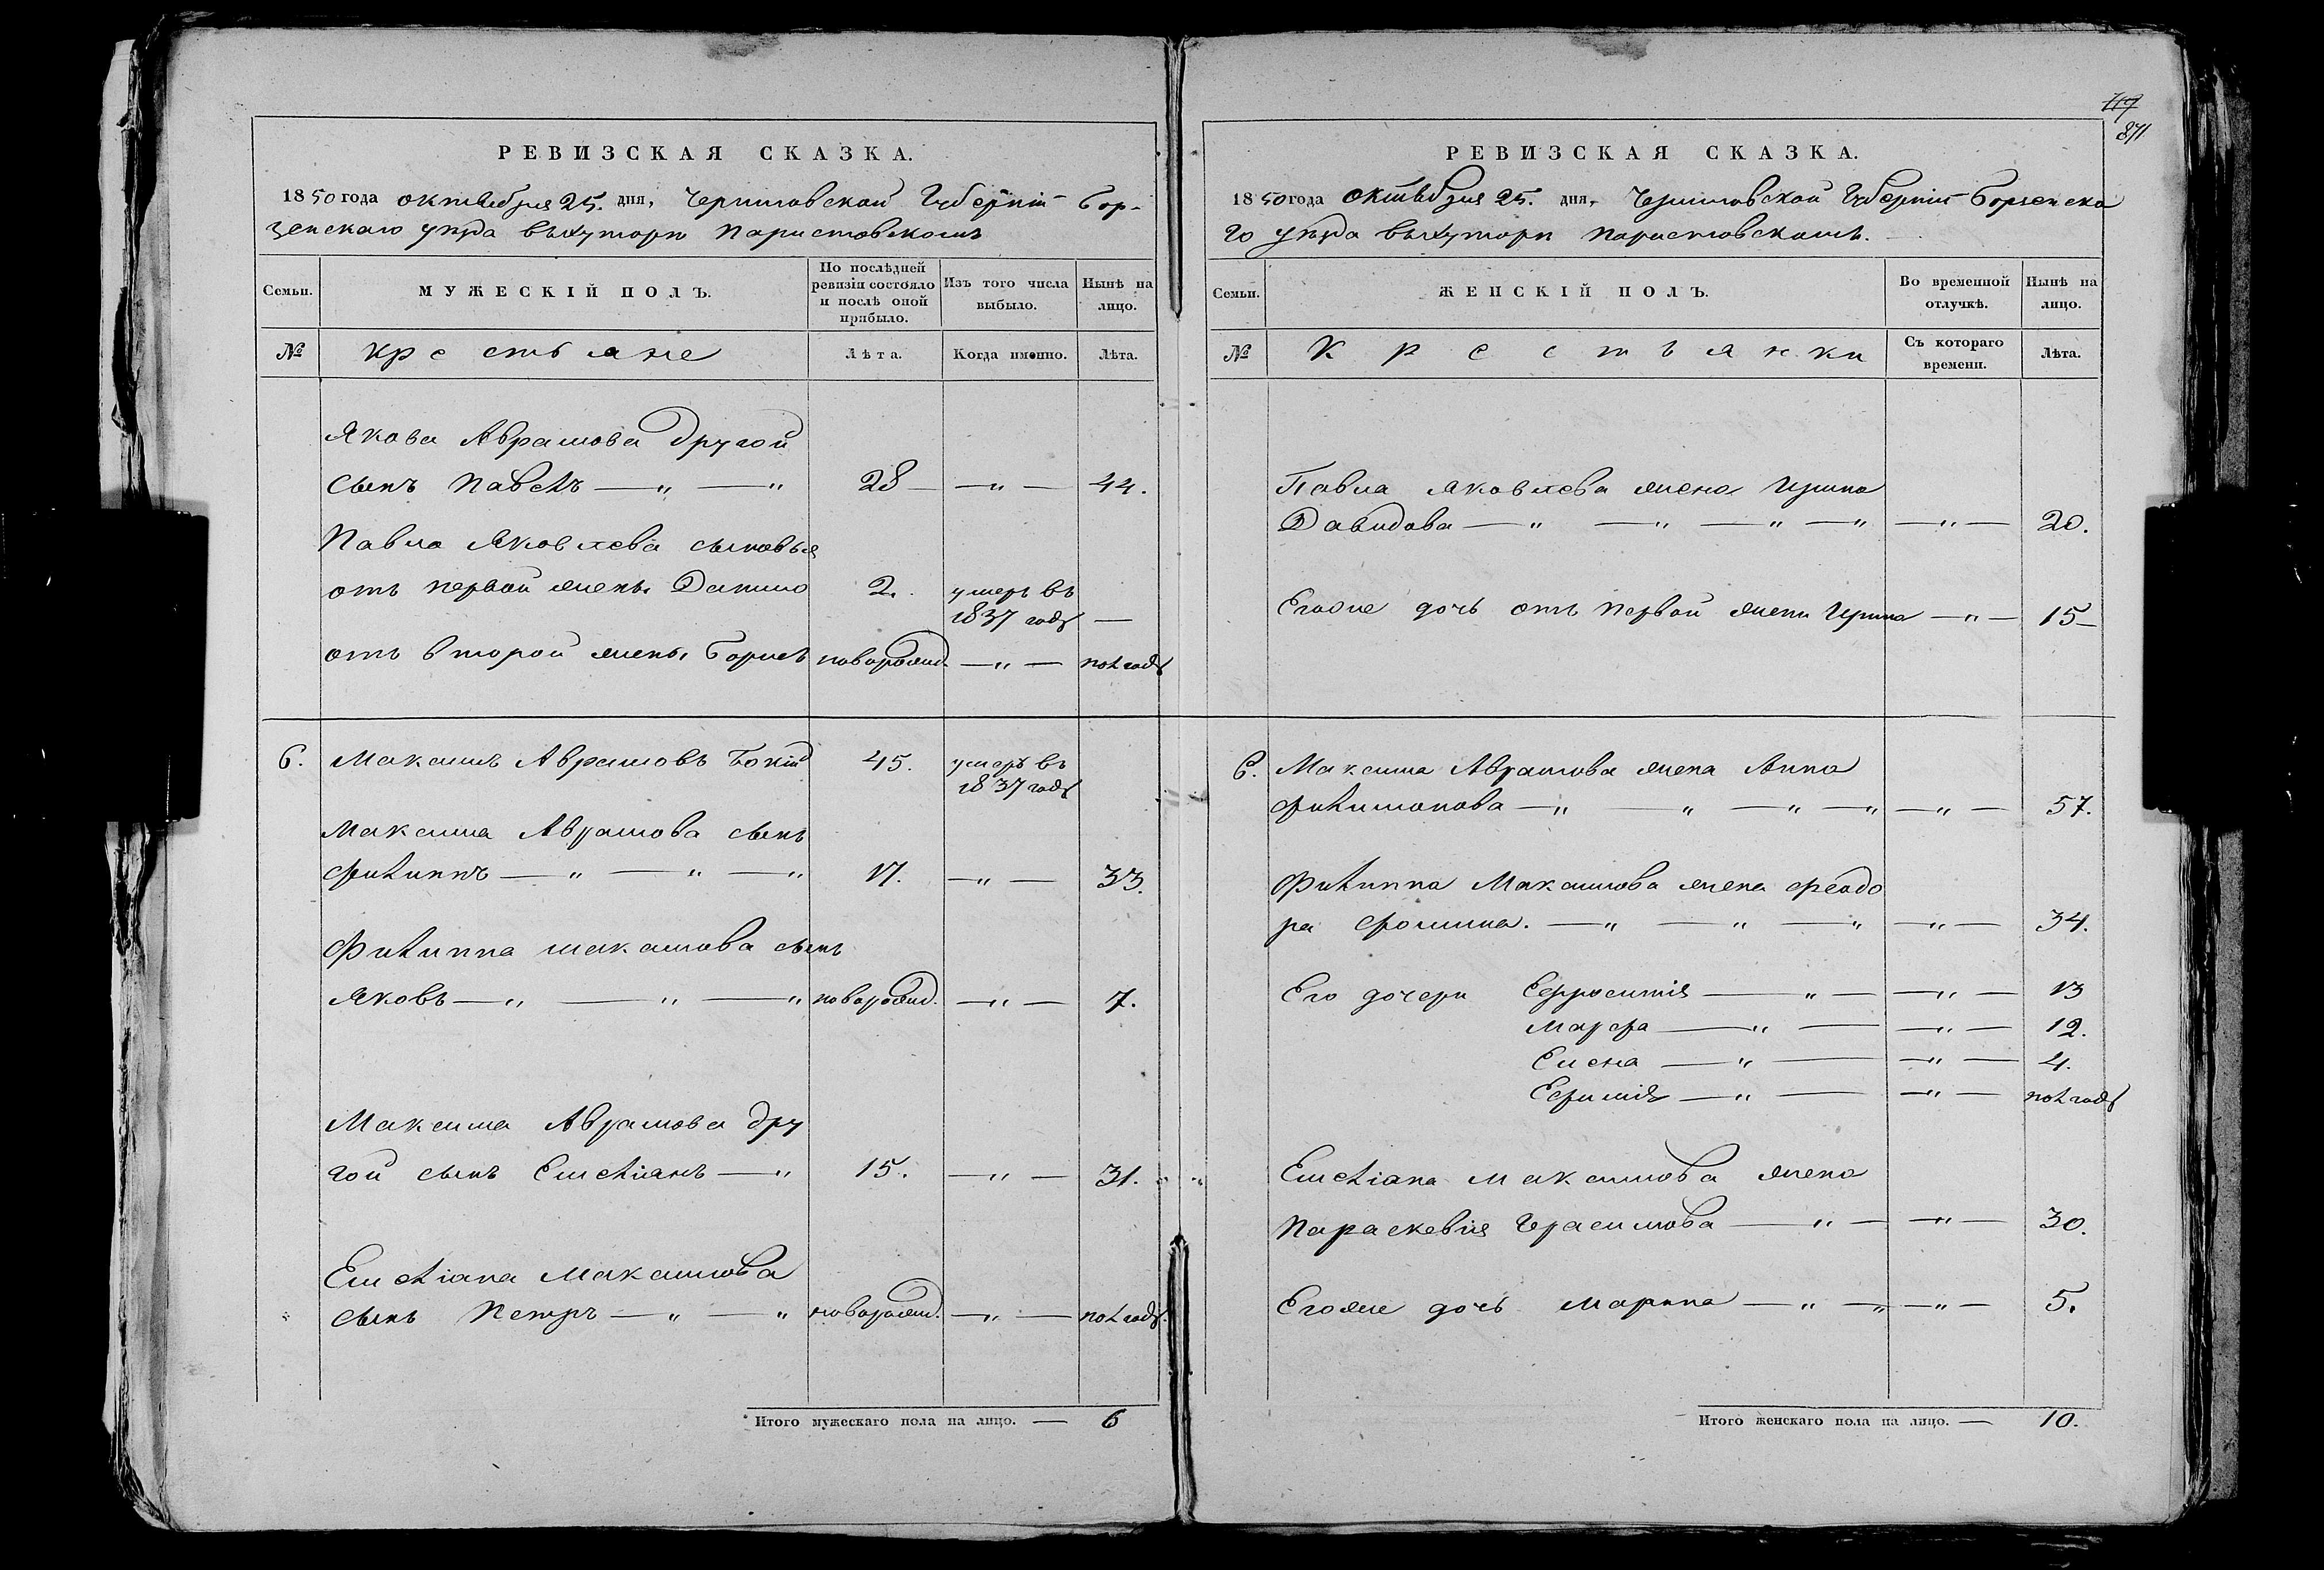 РЕВИЗСКАЯ СКАЗКА.
1850 года октября 25. дня, Черниговской Губерніи Бор-
зенскаго уѣзда въ хуторѣ Паристовскомъ
Семьи.
МУЖЕСКІЙ ПОЛЪ.
По послѣдней ревизіи состояло и послѣ оной прибыло.
Изъ того числа выбыло.
Нынѣ на лицо.
№ крестьяне Лѣта. Когда именно. Лѣта.
Якова Аврамова другой
сынъ Павелъ — „ — „ 28 — „ — 44.
Павла Яковлева сыновья
отъ первой жены Данило 2. умеръ въ
1837 году —
отъ второй жены Борисъ новорожд. — „ — полгода
6. Максимъ Аврамовъ Бокій 45. умеръ въ
1837 году
Максима Аврамова сынъ
Филиппъ — „ — „ — „ 17. — „ — 33.
Филиппа Максимова сынъ
Яковъ — „ — „ — „ новорожд. — „ — 7.
Максима Аврамова дру
гой сынъ Емеліянъ — „ 15. — „ — 31.
Емеліана Максимова
сынъ Петръ — „ — „ новорожд. — „ — полгода.
Итого мужескаго пола на лицо. — 6
719
871
РЕВИЗСКАЯ СКАЗКА.
1850 года октября 25. дня, Черниговской Губерніи Борзенска
го уѣзда въ хуторѣ Паристовскомъ.
Семьи.
ЖЕНСКІЙ ПОЛЪ.
Во временной отлучкѣ.
Нынѣ на лицо.
№ Крестьянки Съ котораго времени. Лѣта.
Павла Яковлева жена Ирина
Давидова — „ — „ — „ — „ — „ — 20.
Егоже дочь отъ первой жены Ирина — „ — 15
6. Максима Аврамова жена Анна
Филимонова — „ — „ — „ — „ — „ — 57.
Филиппа Максимова жена Феодо
ра Фомина. — „ — „ — „ — „ — 34.
Его дочери Ефросинія — „ — — „ — 13
Марфа — „ — — „ — 12.
Елена — „ — — „ — 4.
Ефимія — „ — — „ — полгода
Емеліана Максимова жена
Параскевія Герасимова — „ — — „ — 30.
Егоже дочь Марина — „ — „ — „ — 5.
Итого женскаго пола на лицо. — 10.